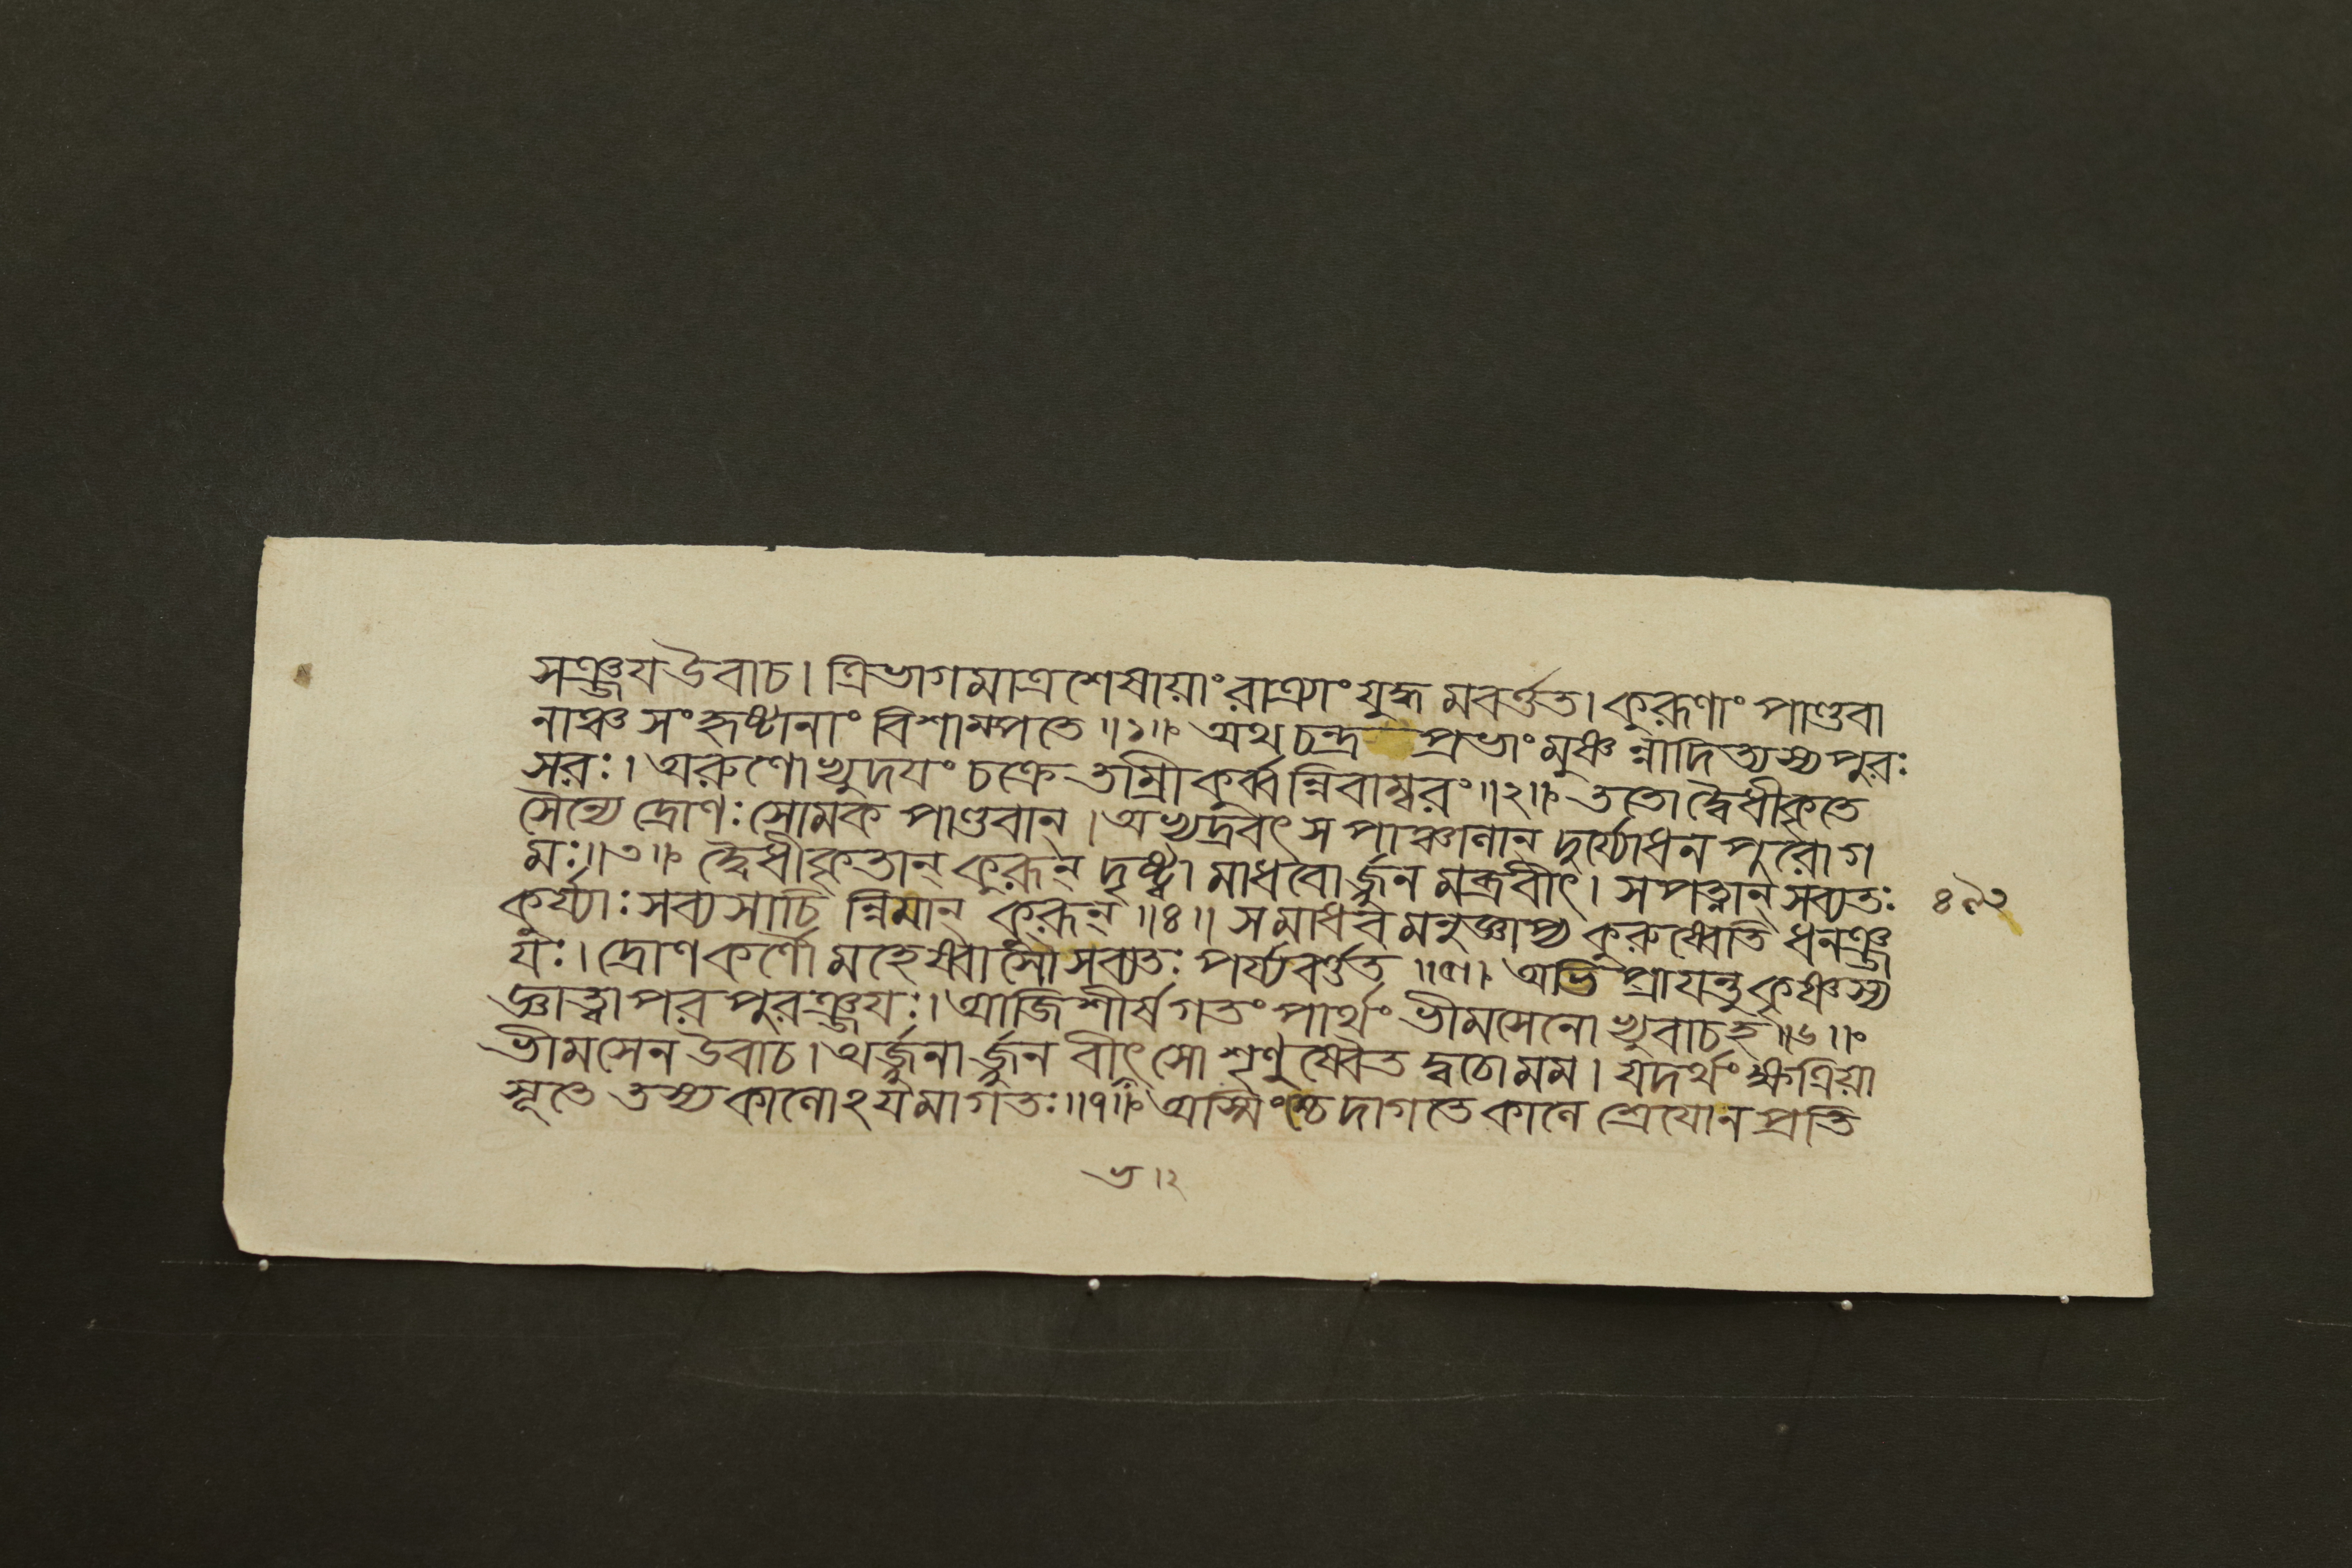 সঞ্জয উবাচ। ত্রিভাগমাত্রশেষায়াং রাত্র্যাং যুদ্ধমবর্ত্তত। কুরূণাং পাণ্ডবা
নাঞ্চ সংহৃষ্টানাং বিশাম্পতে॥১॥ অথ চন্দ্র প্রভাং মুঞ্চন্নাদিত্যস্য পুরঃ
সরঃ। অরুণোভ্যুদযং চক্রে তাম্রীকুর্ব্বন্নিবাম্বরং॥২॥ ততো দ্বৈধীকৃতে
সৈন্যে দ্রোণঃ সোমক পাণ্ডবান্। অভ্যদ্রবৎ স পাঞ্চালান্ দুর্য্যোধন পুরোগ
মঃ॥৩॥ দ্বৈধীকৃতান্ কুরূন্ দৃষ্ট্বা মাধবোর্জ্জুনমব্রবীৎ। সপত্নান্ সব্যতঃ
কুর্য্যাঃ সব্যসাচিন্নিমান্ কুরূন্॥৪॥ স মাধবমনুজ্ঞাপ্য কুরুষ্বেতি ধনঞ্জ
যঃ। দ্রোণকর্ণৌ মহেষ্বাসৌ সব্যতঃ পর্য্যবর্ত্তত॥৫॥ অভিপ্রাযন্তু কৃষ্ণস্য
জ্ঞাত্বা পরপুরঞ্জযঃ। আজিশীর্ষগতং পার্থং ভীমসেনোভ্যুবাচ হ॥৬॥
ভীমসেন উবাচ। অর্জ্জুনার্জ্জুন বীৎসো শৃণুষ্বৈতদ্বচো মম। যদর্থং ক্ষত্রিয়া
সূতে তস্য কালোঽযমাগতঃ॥৭॥ অস্মিংশ্চেদাগতে কালে শ্রেযো ন প্রতি